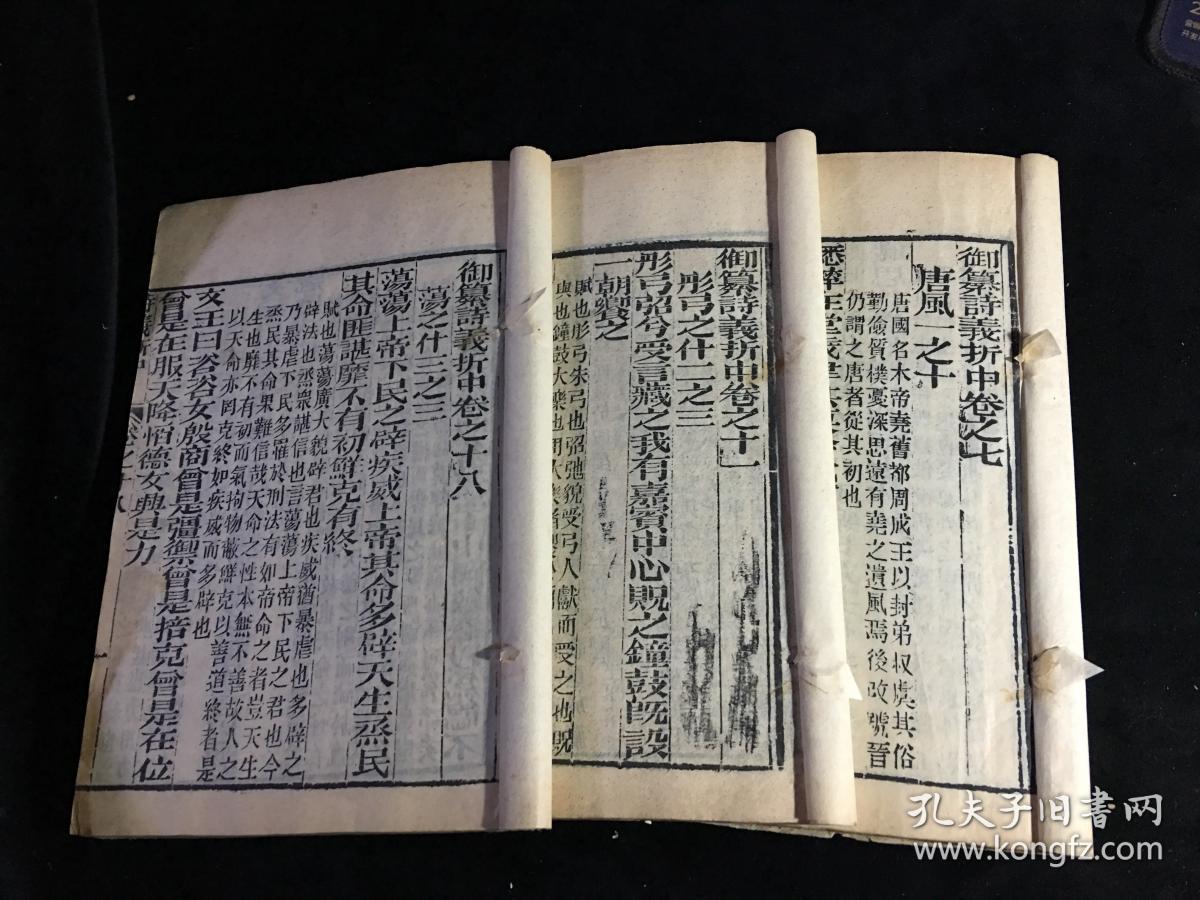 御纂詩義折中卷之七
唐風一之十
唐國名本帝堯舊都周成王以封弟叔虞其俗
勤儉質樸憂深思遠有堯之遺風焉後改號晉
仍謂之唐者從其初也
蟋蟀在堂歲
御纂詩義折中卷之十一
彤弓之什二之三
彤弓弨兮受言藏之我有嘉賓中心貺之鐘鼓旣設
一朝饗之
賦也彤弓朱弓也弨弛貌受弓人獻而受之也貺
與也鐘鼓大樂也
御纂詩義折中卷之十八
蕩之什三之三
蕩蕩上帝下民之辟疾威上帝其命多辟天生烝民
其命匪諶靡不有初鮮克有終
賦也蕩蕩廣大貌辟君也疾威猶暴虐也多辟之
辟法也烝衆諶信也言蕩蕩上帝下民之君也今
乃暴虐下民多罹於刑法有如帝命之者豈天生
烝民其命果難信哉天命之性本無不善故人之
生也靡不有初而氣拘物蔽鮮克以善道終者是
以天命亦罔克終如疾威而多辟也
文王曰咨咨女殷商曾是彊禦曾是掊克曾是在位
曾是在服天降慆德女興是力
卷之十八
孔夫子旧书网
www.kongfz.com